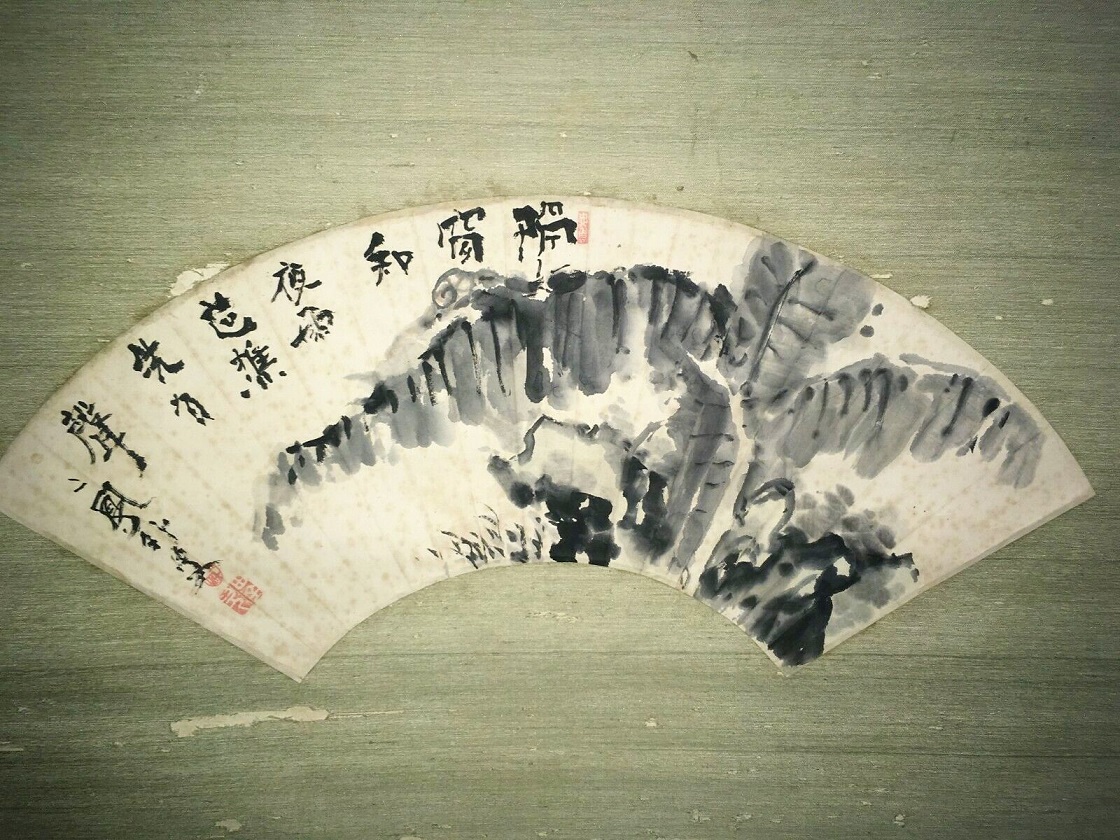 隔
窗
知
夜雨
芭蕉
先有
聲